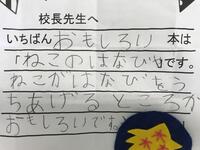 校長先生へ
いちばんおもしろい本は
「ねこのはなび」です。
ねこがはなびをう
ちあげるところが
おもしろいですね